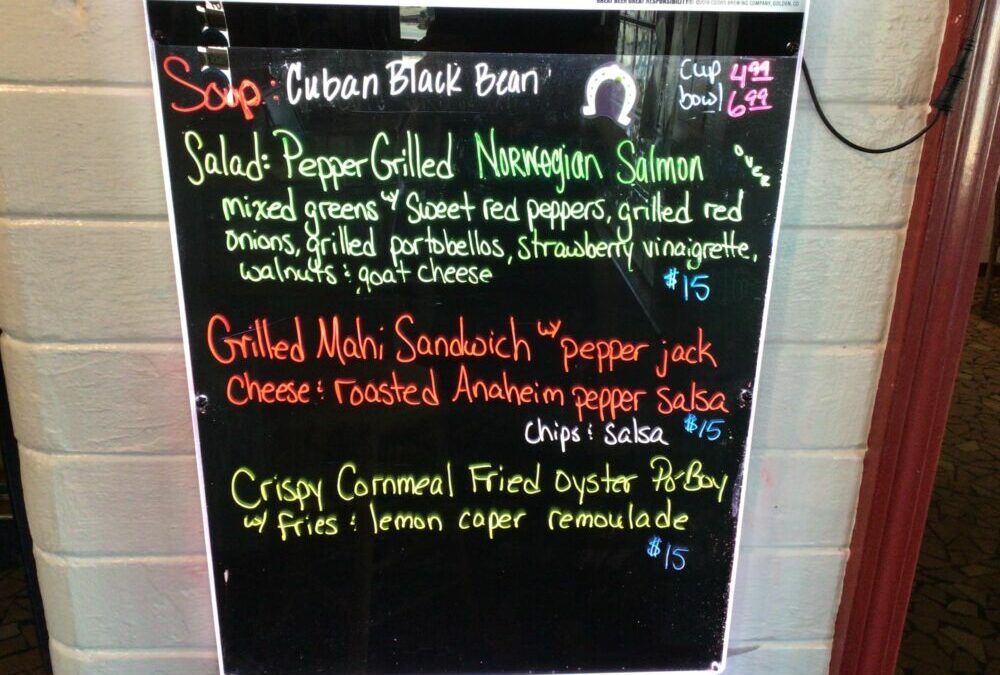 GREAT BEER GREAT RESPONSIBILITY® ©2016 COORS BREWING COMPANY, GOLDEN, CO
Soup: Cuban Black Bean
Cup 4.99
bowl 6.99
Salad: Pepper Grilled Norwegian Salmon over
mixed greens w/ Sweet red peppers, grilled red
onions, grilled portobellos, strawberry vinaigrette,
walnuts & goat cheese
$15
Grilled Mahi Sandwich w/ pepper jack
Cheese & roasted Anaheim pepper salsa
Chips & Salsa $15
Crispy Cornmeal Fried Oyster Po-Boy
w/ fries & lemon caper remoulade
$15